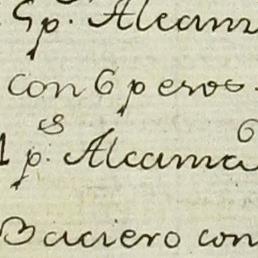 5 p. Alcam
con 6 peros.
1 p.es Alcama
6
Baciero con